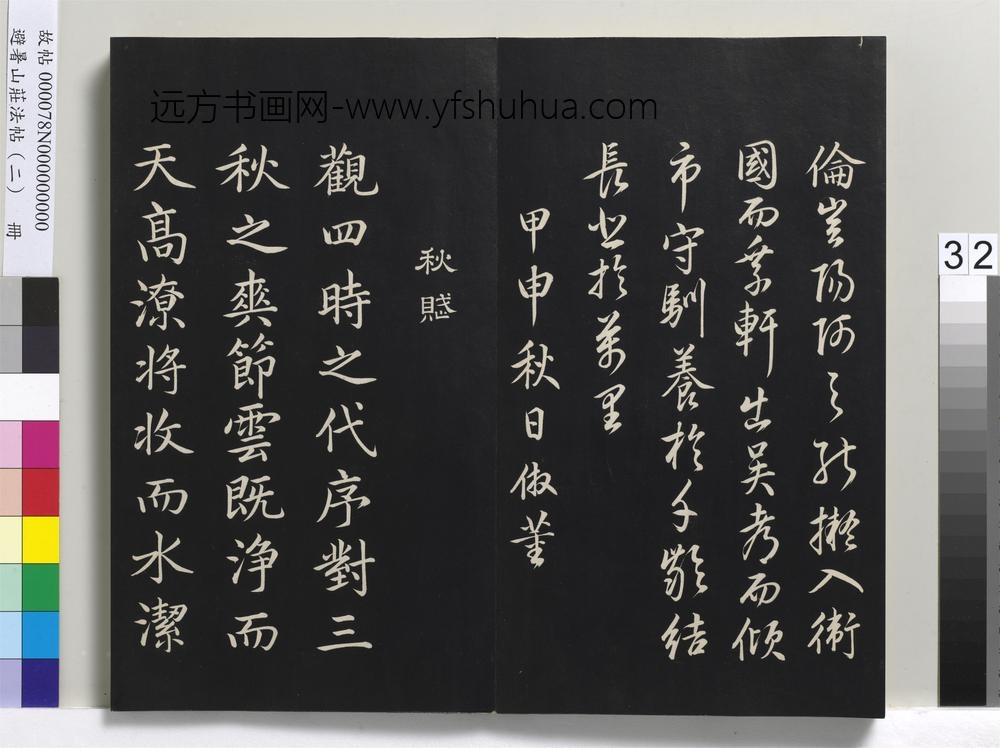 倫豈陽阿之能擬入衛
國而乘軒出吳都而傾
市守馴養於千齡結
長悲於萬里
甲申秋日倣董
秋賦
觀四時之代序對三
秋之爽節雲既淨而
天髙潦將收而水潔
远方书画网-www.yfshuhua.com
故帖 000078N000000000
避暑山莊法帖(二) 冊
32